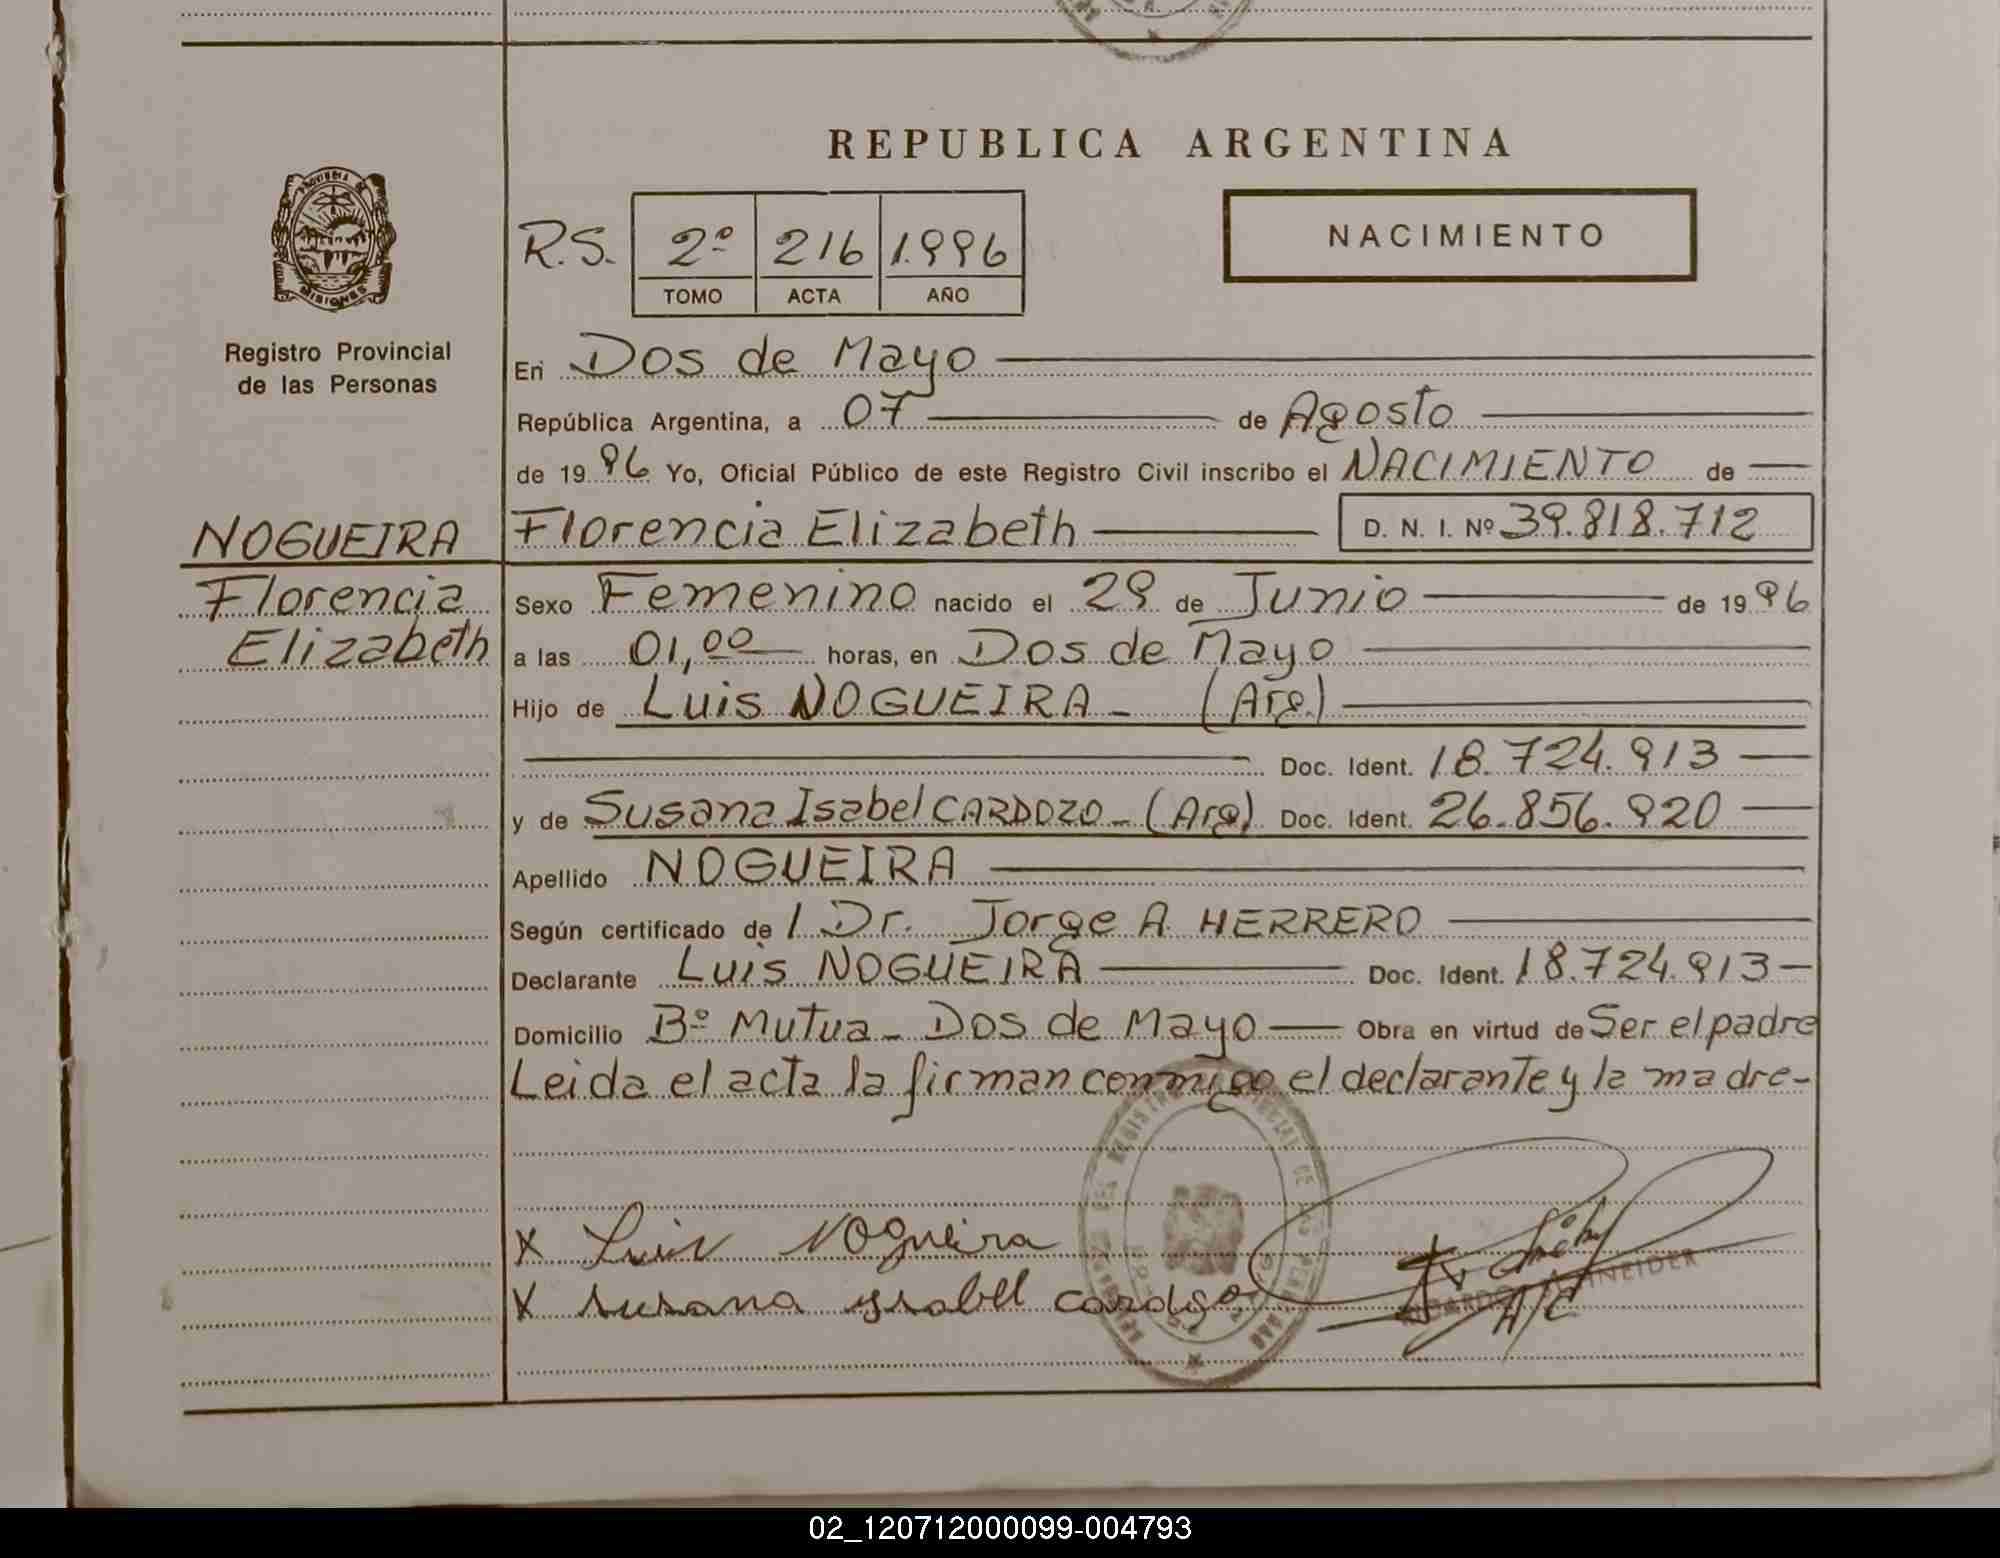 REPUBLICA ARGENTINA
PROVINCIA DE
MISIONES
Registro Provincial
de las Personas
R.S. 2º 216 1.996
TOMO ACTA AÑO
NACIMIENTO
En Dos de Mayo
República Argentina, a 07 de Agosto
de 1996 Yo, Oficial Público de este Registro Civil inscribo el NACIMIENTO de
NOGUEIRA
Florencia
Elizabeth
Florencia Elizabeth D. N. I. Nº 39.818.712
Sexo Femenino nacido el 29 de Junio de 1996
a las 01,00 horas, en Dos de Mayo
Hijo de Luis NOGUEIRA - (Arg.)
Doc. Ident. 18.724.913
y de Susana Isabel CARDOZO - (Arg) Doc. Ident. 26.856.920
Apellido NOGUEIRA
Según certificado de / Dr. Jorge A. HERRERO
Declarante Luis NOGUEIRA Doc. Ident. 18.724.913
Domicilio Bº Mutua - Dos de Mayo Obra en virtud de Ser el padre
Leida el acta la firman conmigo el declarante y la madre-
X Luis Nogueira
X Susana ysabel cardozo
RICARDO SCHNEIDER
A/C
02_120712000099-004793